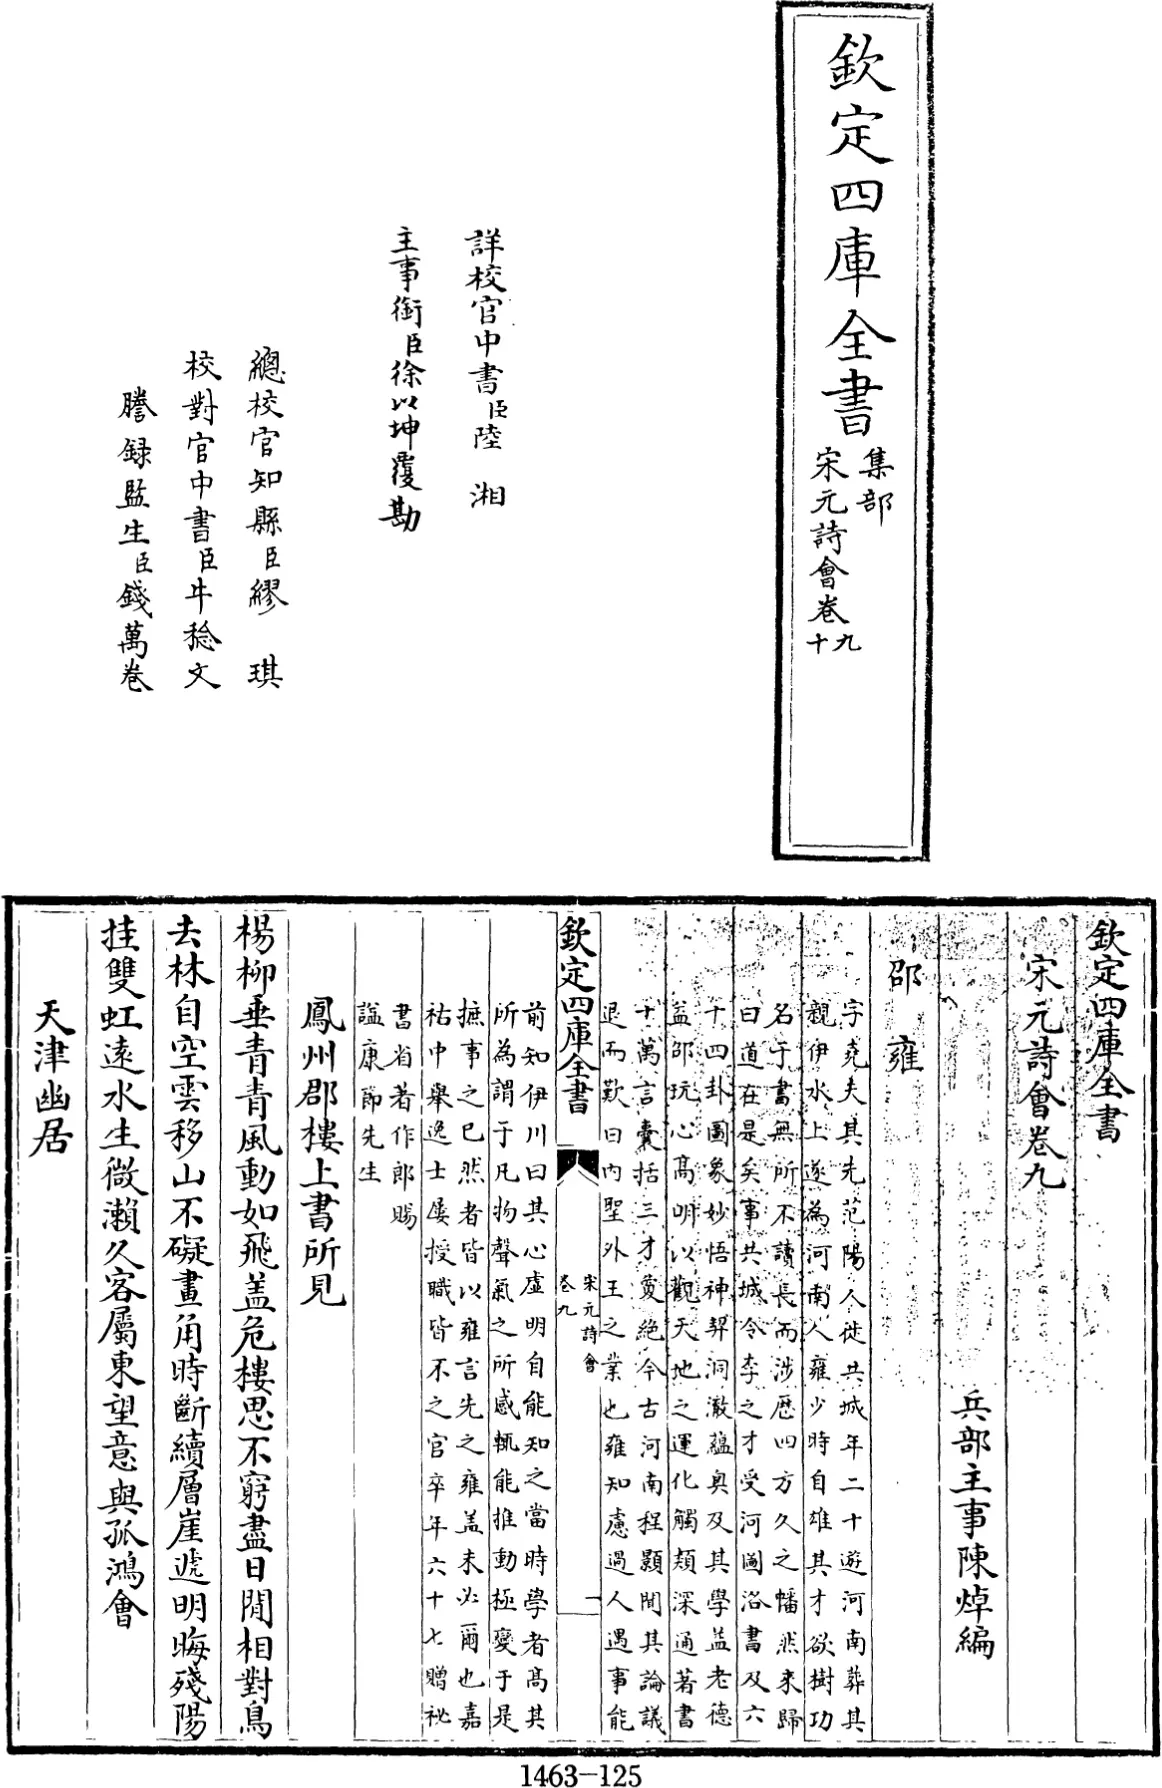 欽定四庫全書
集部
宋元詩會卷九
十
詳校官中書臣陸湘
主事銜臣徐以坤覆勘
總校官知縣臣繆琪
校對官中書臣牛稔文
謄録監生臣錢萬卷
欽定四庫全書
宋元詩會卷九
兵部主事陳焯編
邵雍
字堯夫其先范陽人徙共城年二十遊河南葬其
親伊水上遂為河南人雍少時自雄其才欲樹功
名于書無所不讀長而涉歴四方久之幡然来歸
曰道在是矣事共城令李之才受河圖洛書及六
十四卦圖象妙悟神契洞澈蘊奥及其學益老徳
益邵玩心髙明以觀天地之運化觸類深通著書
十萬言囊括三才夐絶今古河南程顥聞其論議
退而歎曰内聖外王之業也雍知慮過人遇事能
欽定四庫全書
宋元詩會
卷九
一
前知伊川曰其心虚明自能知之當時學者髙其
所為謂于凡物聲氣之所感輒能推動極變于是
摭事之已然者皆以雍言先之雍盖未必爾也嘉
祐中舉逸士屡授職皆不之官卒年六十七贈祕
書省著作郎賜
諡康節先生
鳳州郡樓上書所見
楊柳垂青青風動如飛盖危樓思不窮盡日閒相對鳥
去林自空雲移山不礙畫角時斷續層崖遞明晦殘陽
挂雙虹遠水生微瀨久客屬東望意與孤鴻會
天津幽居
1463-125